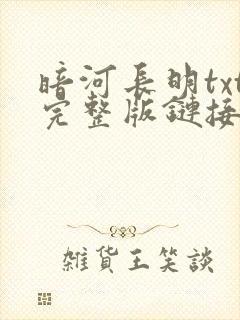 暗河長明txt
完整版鏈接
雜貨王笑談